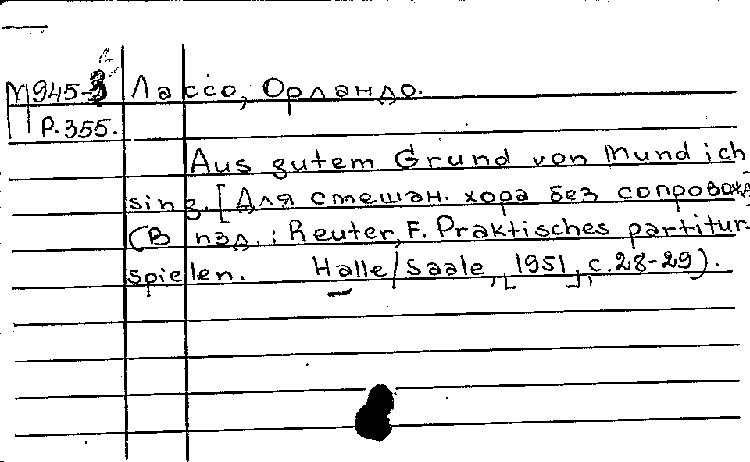 М945-3 Лассо, Орландо.
Р.355.
Aus gutem Grund von Mund ich
sing. [Для смешан. хора без сопровожд
(В изд.: Reuter, F. Praktisches partitur-
spielen. Halle/Saale, [1951], с.28-29).